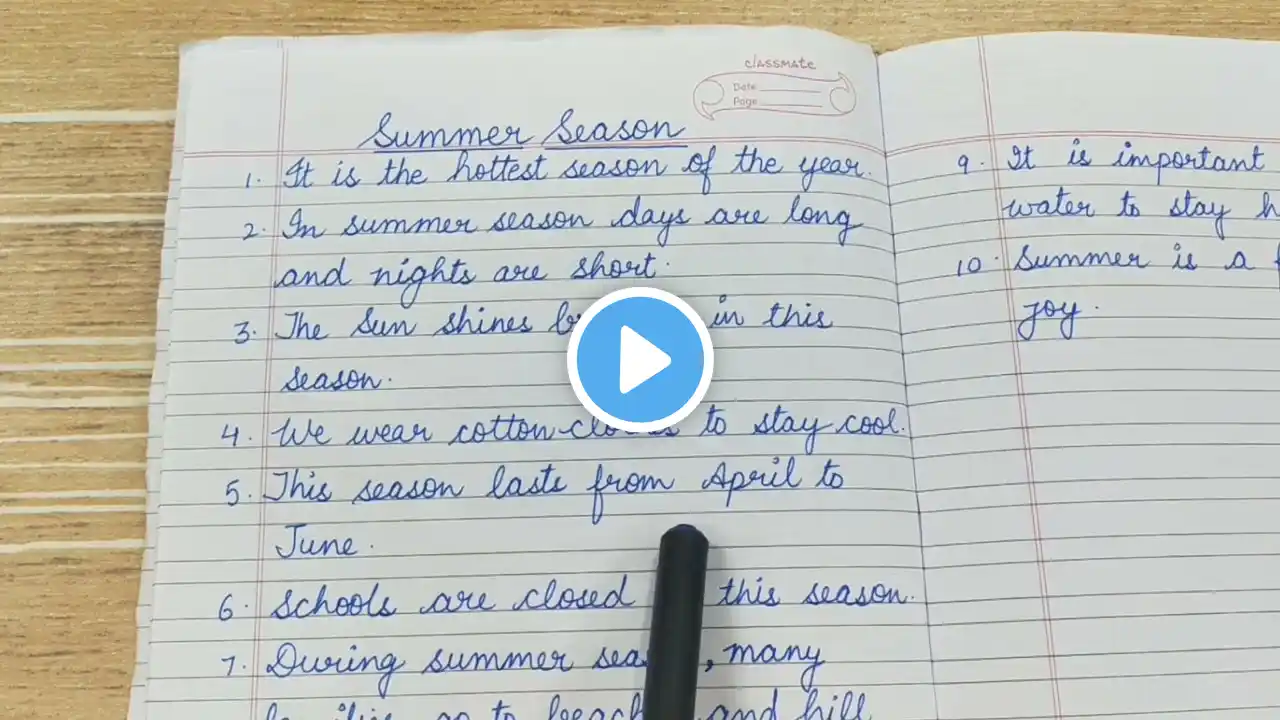 classmate
Date
Page
Summer Season
1. It is the hottest season of the year.
2. In summer season days are long
and nights are short.
3. The Sun shines in this
season.
4. We wear cotton to stay cool.
5. This season lasts from April to
June.
6. Schools are closed this season.
7. During summer many
go to and hill
9. It is important
water to stay
10. Summer is a
joy.